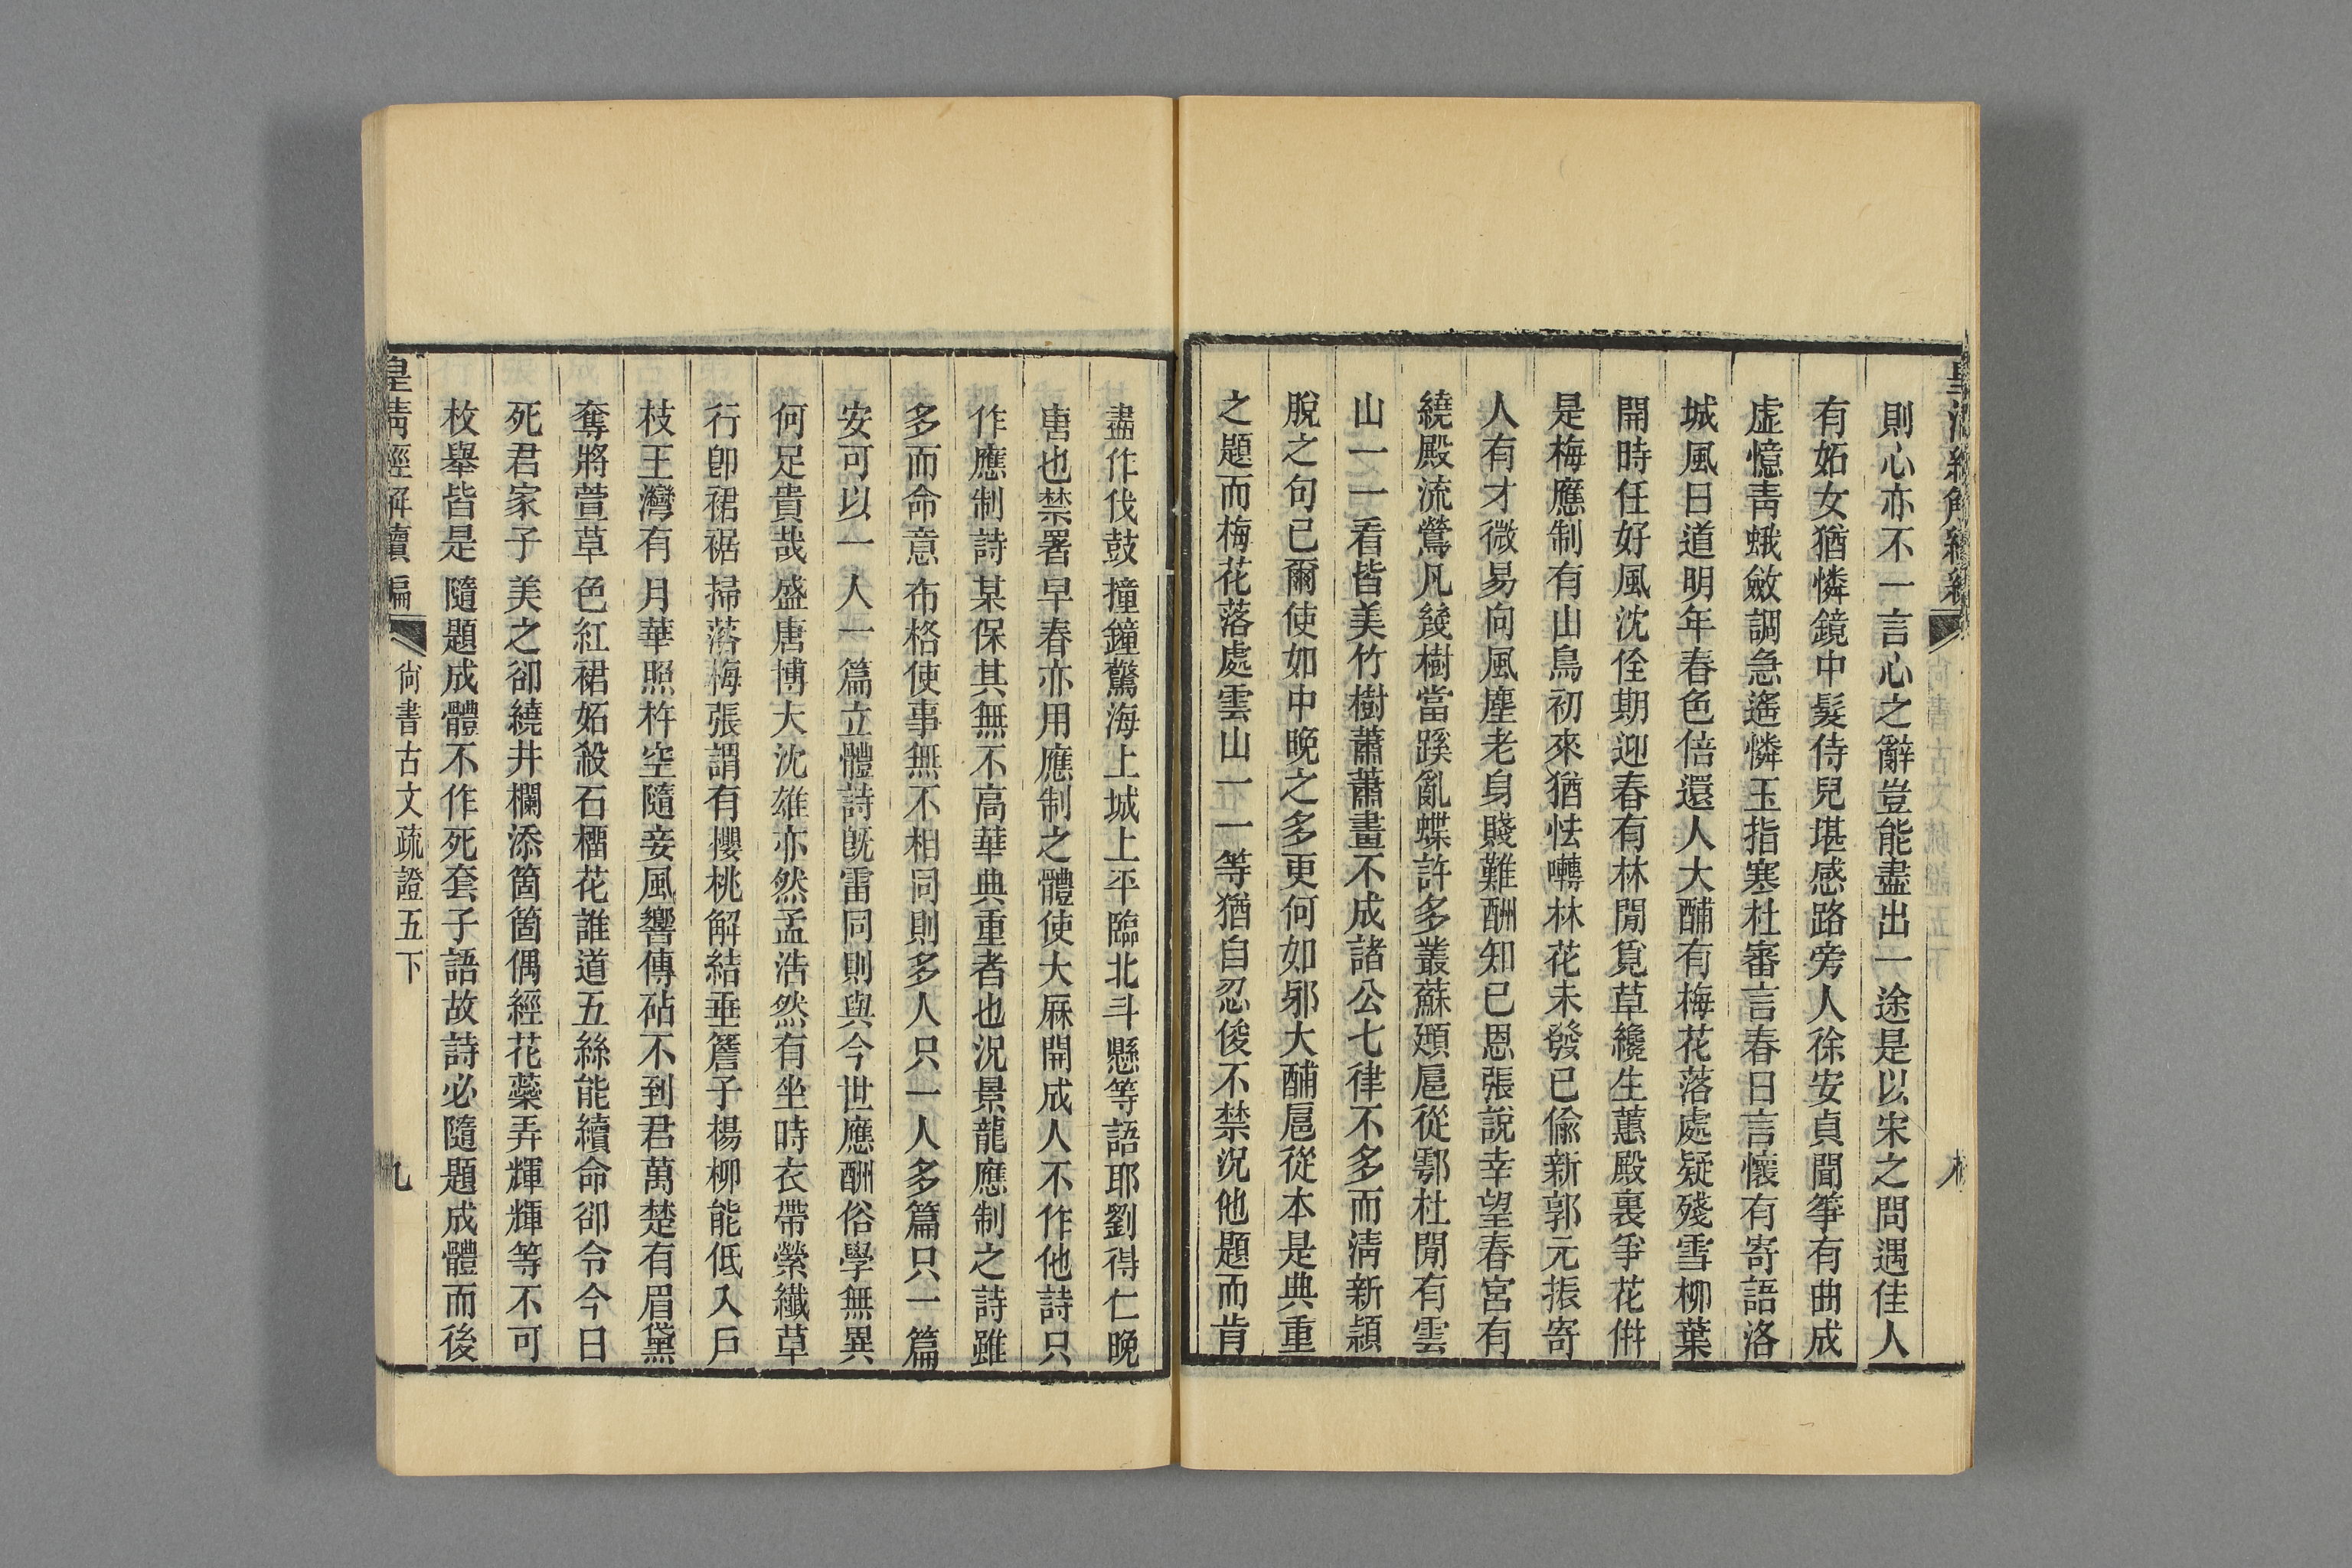 則心亦不一言心之辭豈能盡出一途是以宋之問遇佳人
有妬女猶憐鏡中髮侍兒堪感路旁人徐安貞聞箏有曲成
虛憶靑蛾斂調急遙憐玉指寒杜審言春日言懷有寄語洛
城風日道明年春色倍還人大酺有梅花落處疑殘雪柳葉
開時任好風沈佺期迎春有林閒覓草纔生蕙殿裏爭花倂
是梅應制有山鳥初來猶怯囀林花未發已偸新郭元振寄
人有才微易向風塵老身賤難酬知已恩張說幸望春宮有
繞殿流鶯凡幾樹當蹊亂蝶許多叢蘇頲扈從鄠杜閒有雲
山一一看皆美竹樹蕭蕭畫不成諸公七律不多而淸新穎
脫之句已爾使如中晚之多更何如邪大酺扈從本是典重
之題而梅花落處雲山一一等猶自忍俊不禁況他題而肯
盡作伐鼓撞鐘驚海上城上平臨北斗懸等語耶劉得仁晚
唐也禁署早春亦用應制之體使大庥開成人不作他詩只
作應制詩某保其無不高華典重者也況景龍應制之詩雖
多而命意布格使事無不相同則多人只一人多篇只一篇
安可以一人一篇立體詩旣雷同則與今世應酬俗學無異
何足貴哉盛唐博大沈雄亦然孟浩然有坐時衣帶縈纖草
行卽裙裾掃落梅張謂有櫻桃解結垂簷子楊柳能低入戶
枝王灣有月華照杵空隨妾風響傳砧不到君萬楚有眉黛
奪將萱草色紅裙妬殺石榴花誰道五絲能續命卻令今日
死君家子美之卻繞井欄添箇箇偶經花蘂弄輝輝等不可
枚舉皆是隨題成體不作死套子語故詩必隨題成體而後
皇淸經解續編 尙書古文疏證五下 九